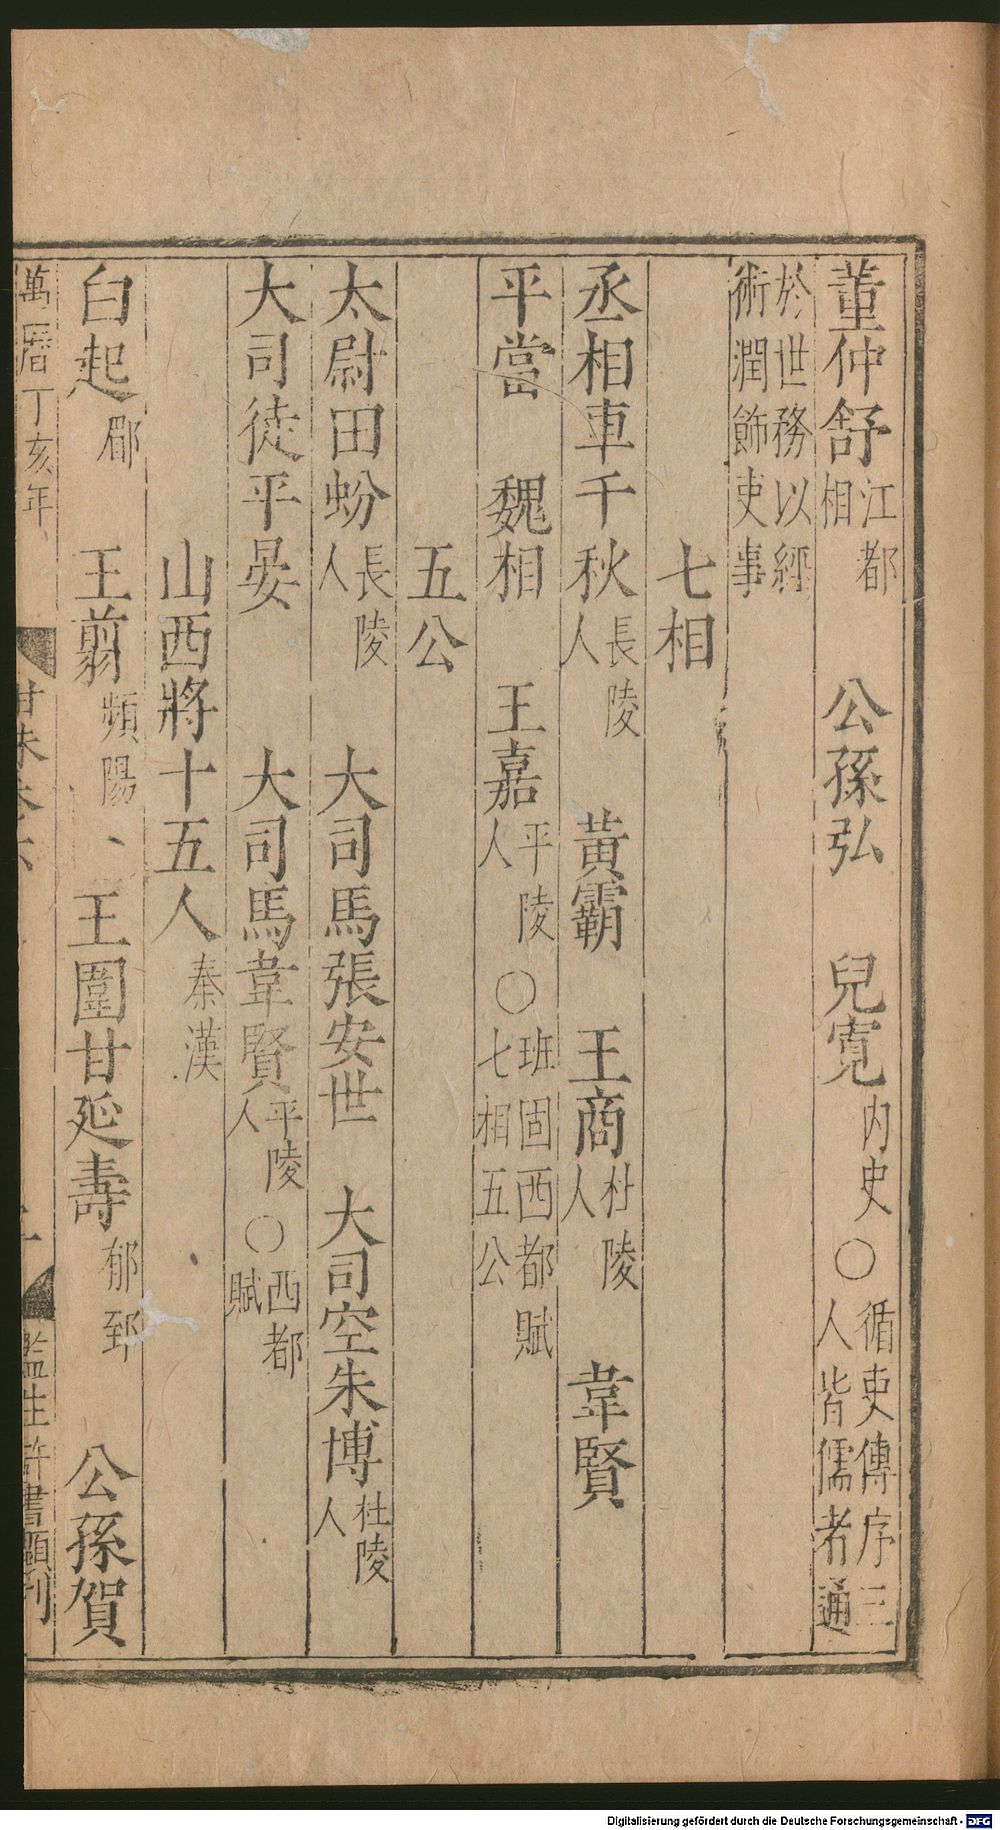 董仲舒江都相　公孫弘　兒寬内史○循吏傳序三人皆儒者通
於世務以經術潤飾吏事
七相
丞相車千秋長陵人　黃霸　王商杜陵人　韋賢
平當　魏相　王嘉平陵人○班固西都賦七相五公
五公
太尉田蚡長陵人　大司馬張安世　大司空朱博杜陵人
大司徒平晏　大司馬韋賢平陵人○西都賦
山西將十五人秦漢
白起郿　王翦頻陽　王圍甘延壽郁郅　公孫賀
萬曆丁亥年　監生許書顯刊
Digitalisierung gefördert durch die Deutsche Forschungsgemeinschaft - DFG